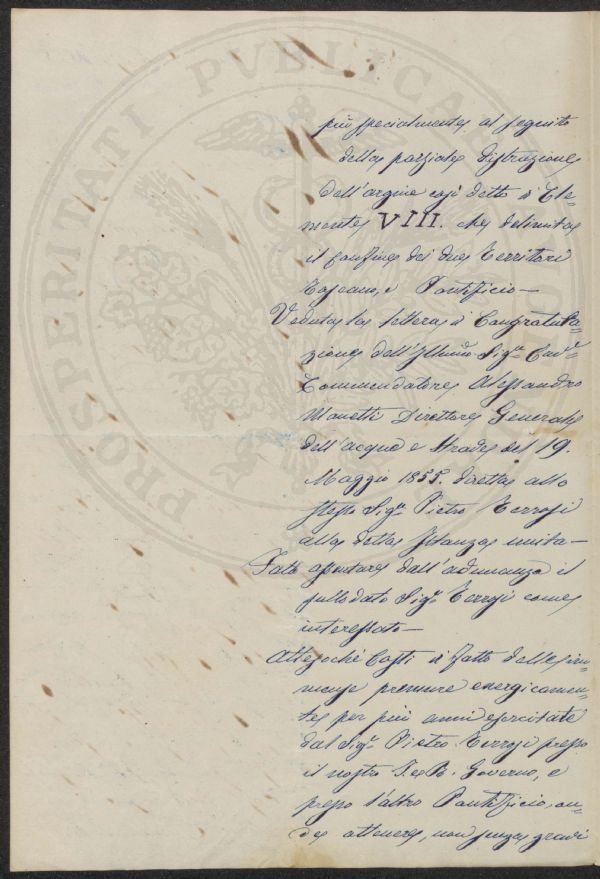 PROSPERITATI PVBLICAE
più specialmente al seguito
della parziale distruzione
dell'argine così detto di Cle-
mente VIII. che delimita
il confine dei due Territori
Toscano, e Pontificio—
Veduta la lettera di Congratula-
zione dell'Illmo Sigr Cavr
Commendatore Alessandro
Manetti Direttore Generale
dell'acque e Strade del 19.
Maggio 1855. diretta allo
stesso Sigr Pietro Terrosi
alla detta Istanza unita—
Fatto assentare dall'adunanza il
sullodato Sigr Terrosi come
interessato—
Attesoché basti il fatto delle im-
mense premure energicamen-
te per più anni esercitate
dal Sigr Pietro Terrosi presso
il nostro I. e R. Governo, e
presso l'altro Pontificio, on-
de ottenere, non senza gravi